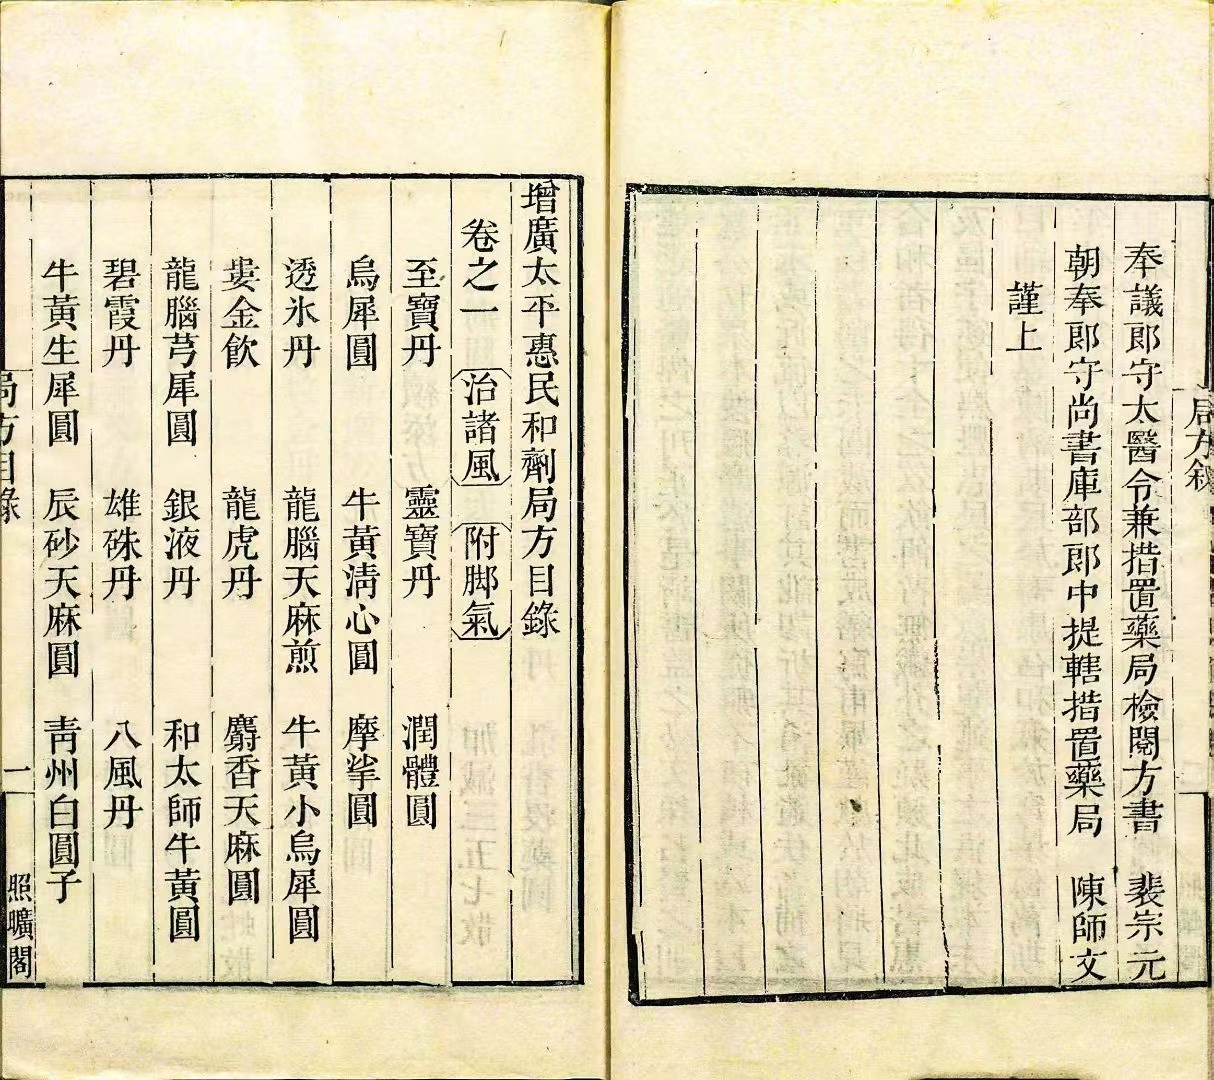 局方叙
奉議郎守太醫令兼措置藥局檢閱方書　裴宗元
朝奉郎守尚書庫部郎中提轄措置藥局　陳師文
謹上
增廣太平惠民和劑局方目錄
卷之一　治諸風　附脚氣
至寶丹　靈寶丹　潤體圓
烏犀圓　牛黃淸心圓　摩挲圓
透氷丹　龍腦天麻煎　牛黃小烏犀圓
婁金飮　龍虎丹　麝香天麻圓
龍腦芎犀圓　銀液丹　和太師牛黃圓
碧霞丹　雄硃丹　八風丹
牛黃生犀圓　辰砂天麻圓　靑州白圓子
局方目錄　一　照曠閣